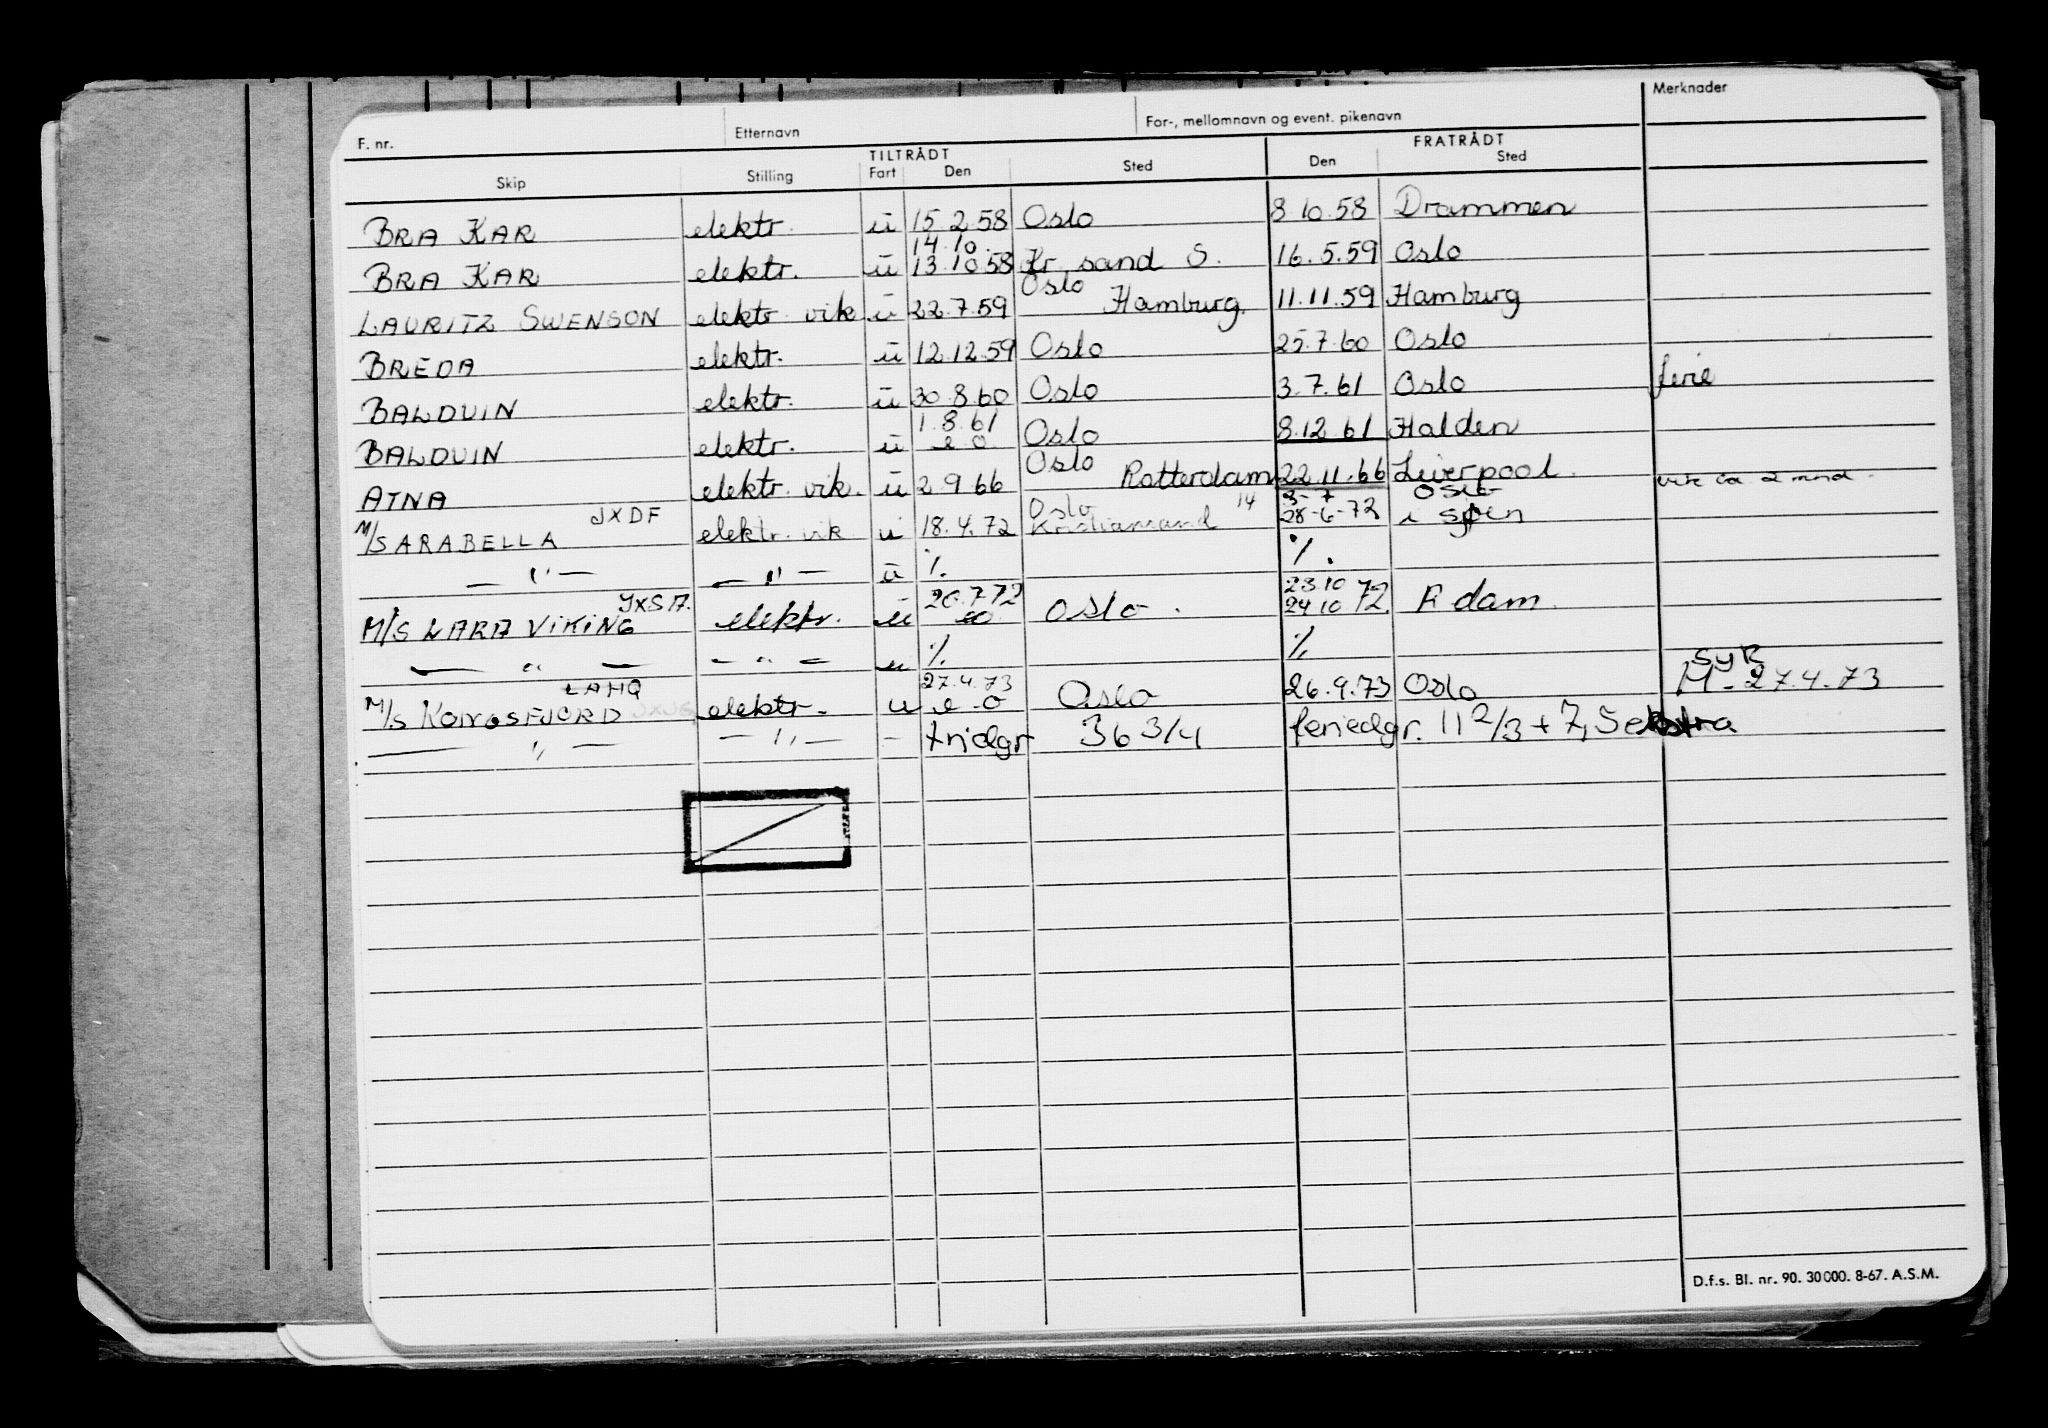 Merknader
F. nr. Etternavn For-, mellomnavn og event. pikenavn
TILTRÅDT FRATRÅDT
Skip Stilling Fart Den Sted Den Sted
BRA KAR elektr. u 15.2.58 Oslo 8.10.58 Drammen
14.10.
BRA KAR elektr. u 13.10.58 Kr. sand S. 16.5.59 Oslo
Oslo
LAURITZ SWENSON elektr. vik u 22.7.59 Hamburg. 11.11.59 Hamburg
BREDA elektr. u 12.12.59 Oslo 25.7.60 Oslo
BALDUIN elektr. u 30.8.60 Oslo 3.7.61 Oslo ferie
1.8.61
BALDUIN elektr. u e o Oslo 8.12.61 Halden
Oslo
ATNA elektr. vik. u 2.9.66 Rotterdam 22.11.66 Liverpool. vik ca 2 mnd.
JXDF Oslo 14 8-7 Oslo
M/S ARABELLA elektr. vik u 18.4.72 Kristiansand 28-6-72 i sjøen
— " — — " — u %. %.
JXSA. 20.7.72 23.10
M/S LARA VIKING elektr. u eo Oslo. 24.10 72. A dam.
— " — — " — u %. %.
LAHQ 27.4.73 syk
M/S KONGSFJORD elektr. u e o Oslo 26.9.73 Oslo M - 27.4.73
— " — — " — - fridgr 36 3/4 feriedgr. 11 2/3 + 7,5 ekstra
D.f.s. Bl. nr. 90. 30000. 8-67. A.S.M.